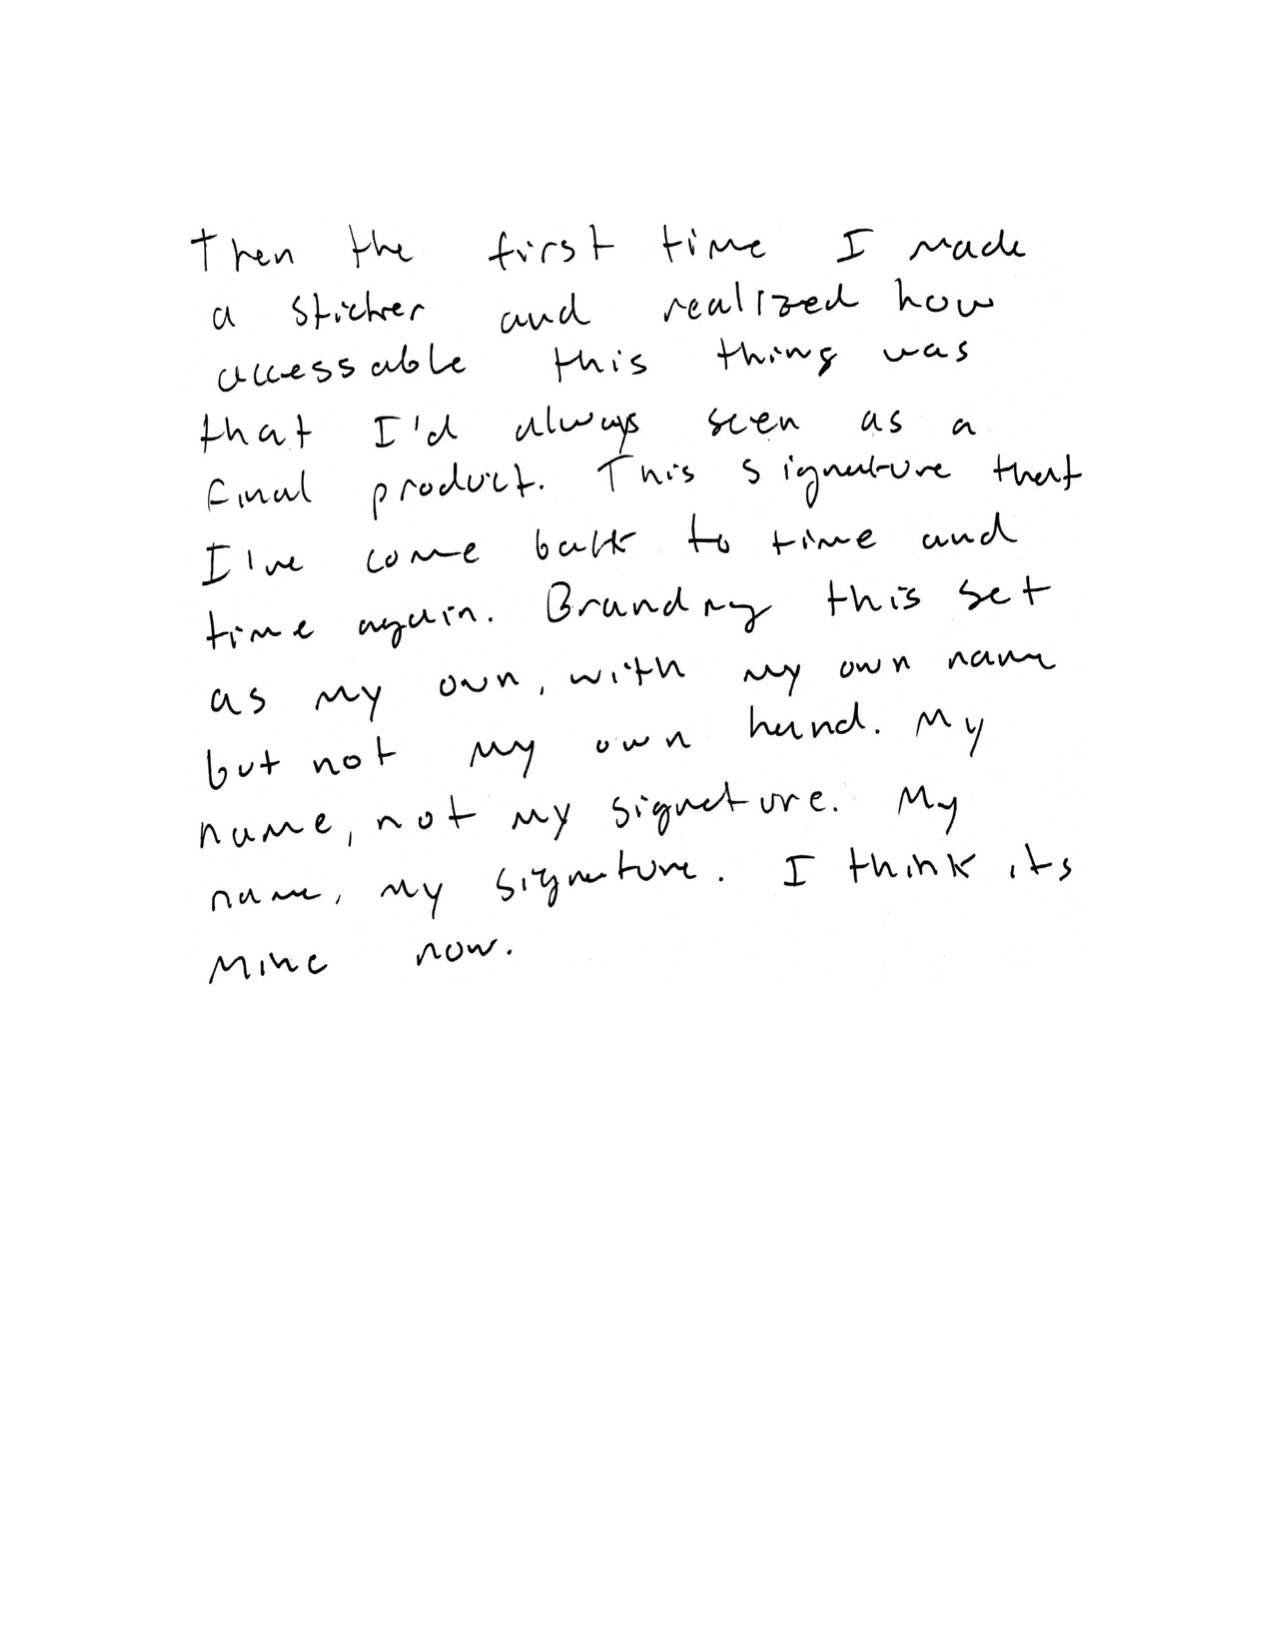 Then the first time I made
a sticker and realized how
accessable this thing was
that I'd always seen as a
final product. This signature that
I've come back to time and
time again. Branding this set
as my own, with my own name
but not my own hand. My
name, not my signature. My
name, my signature. I think its
mine now.